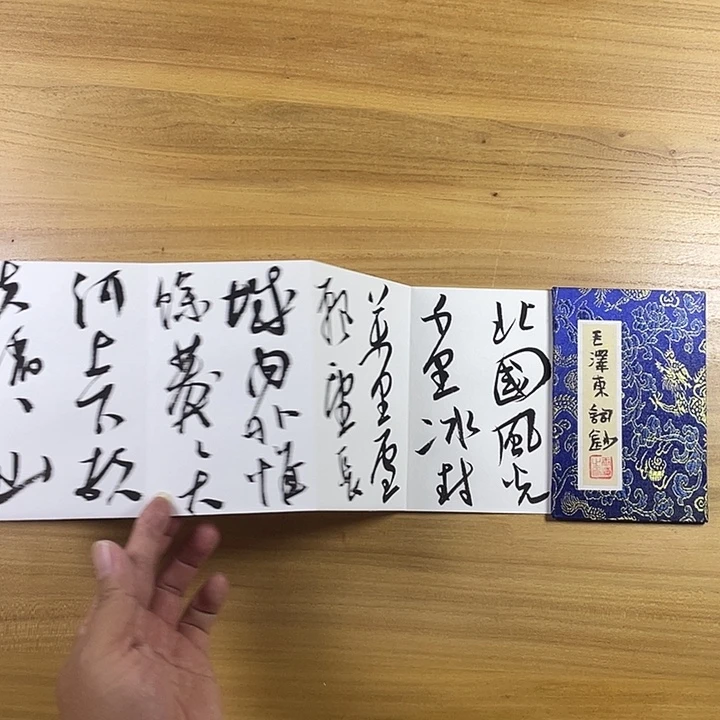 毛澤東詞鈔
北國風光
千里冰封
萬里雪
飄望長
城内外惟
餘莽〻大
河上下頓
失滔〻山